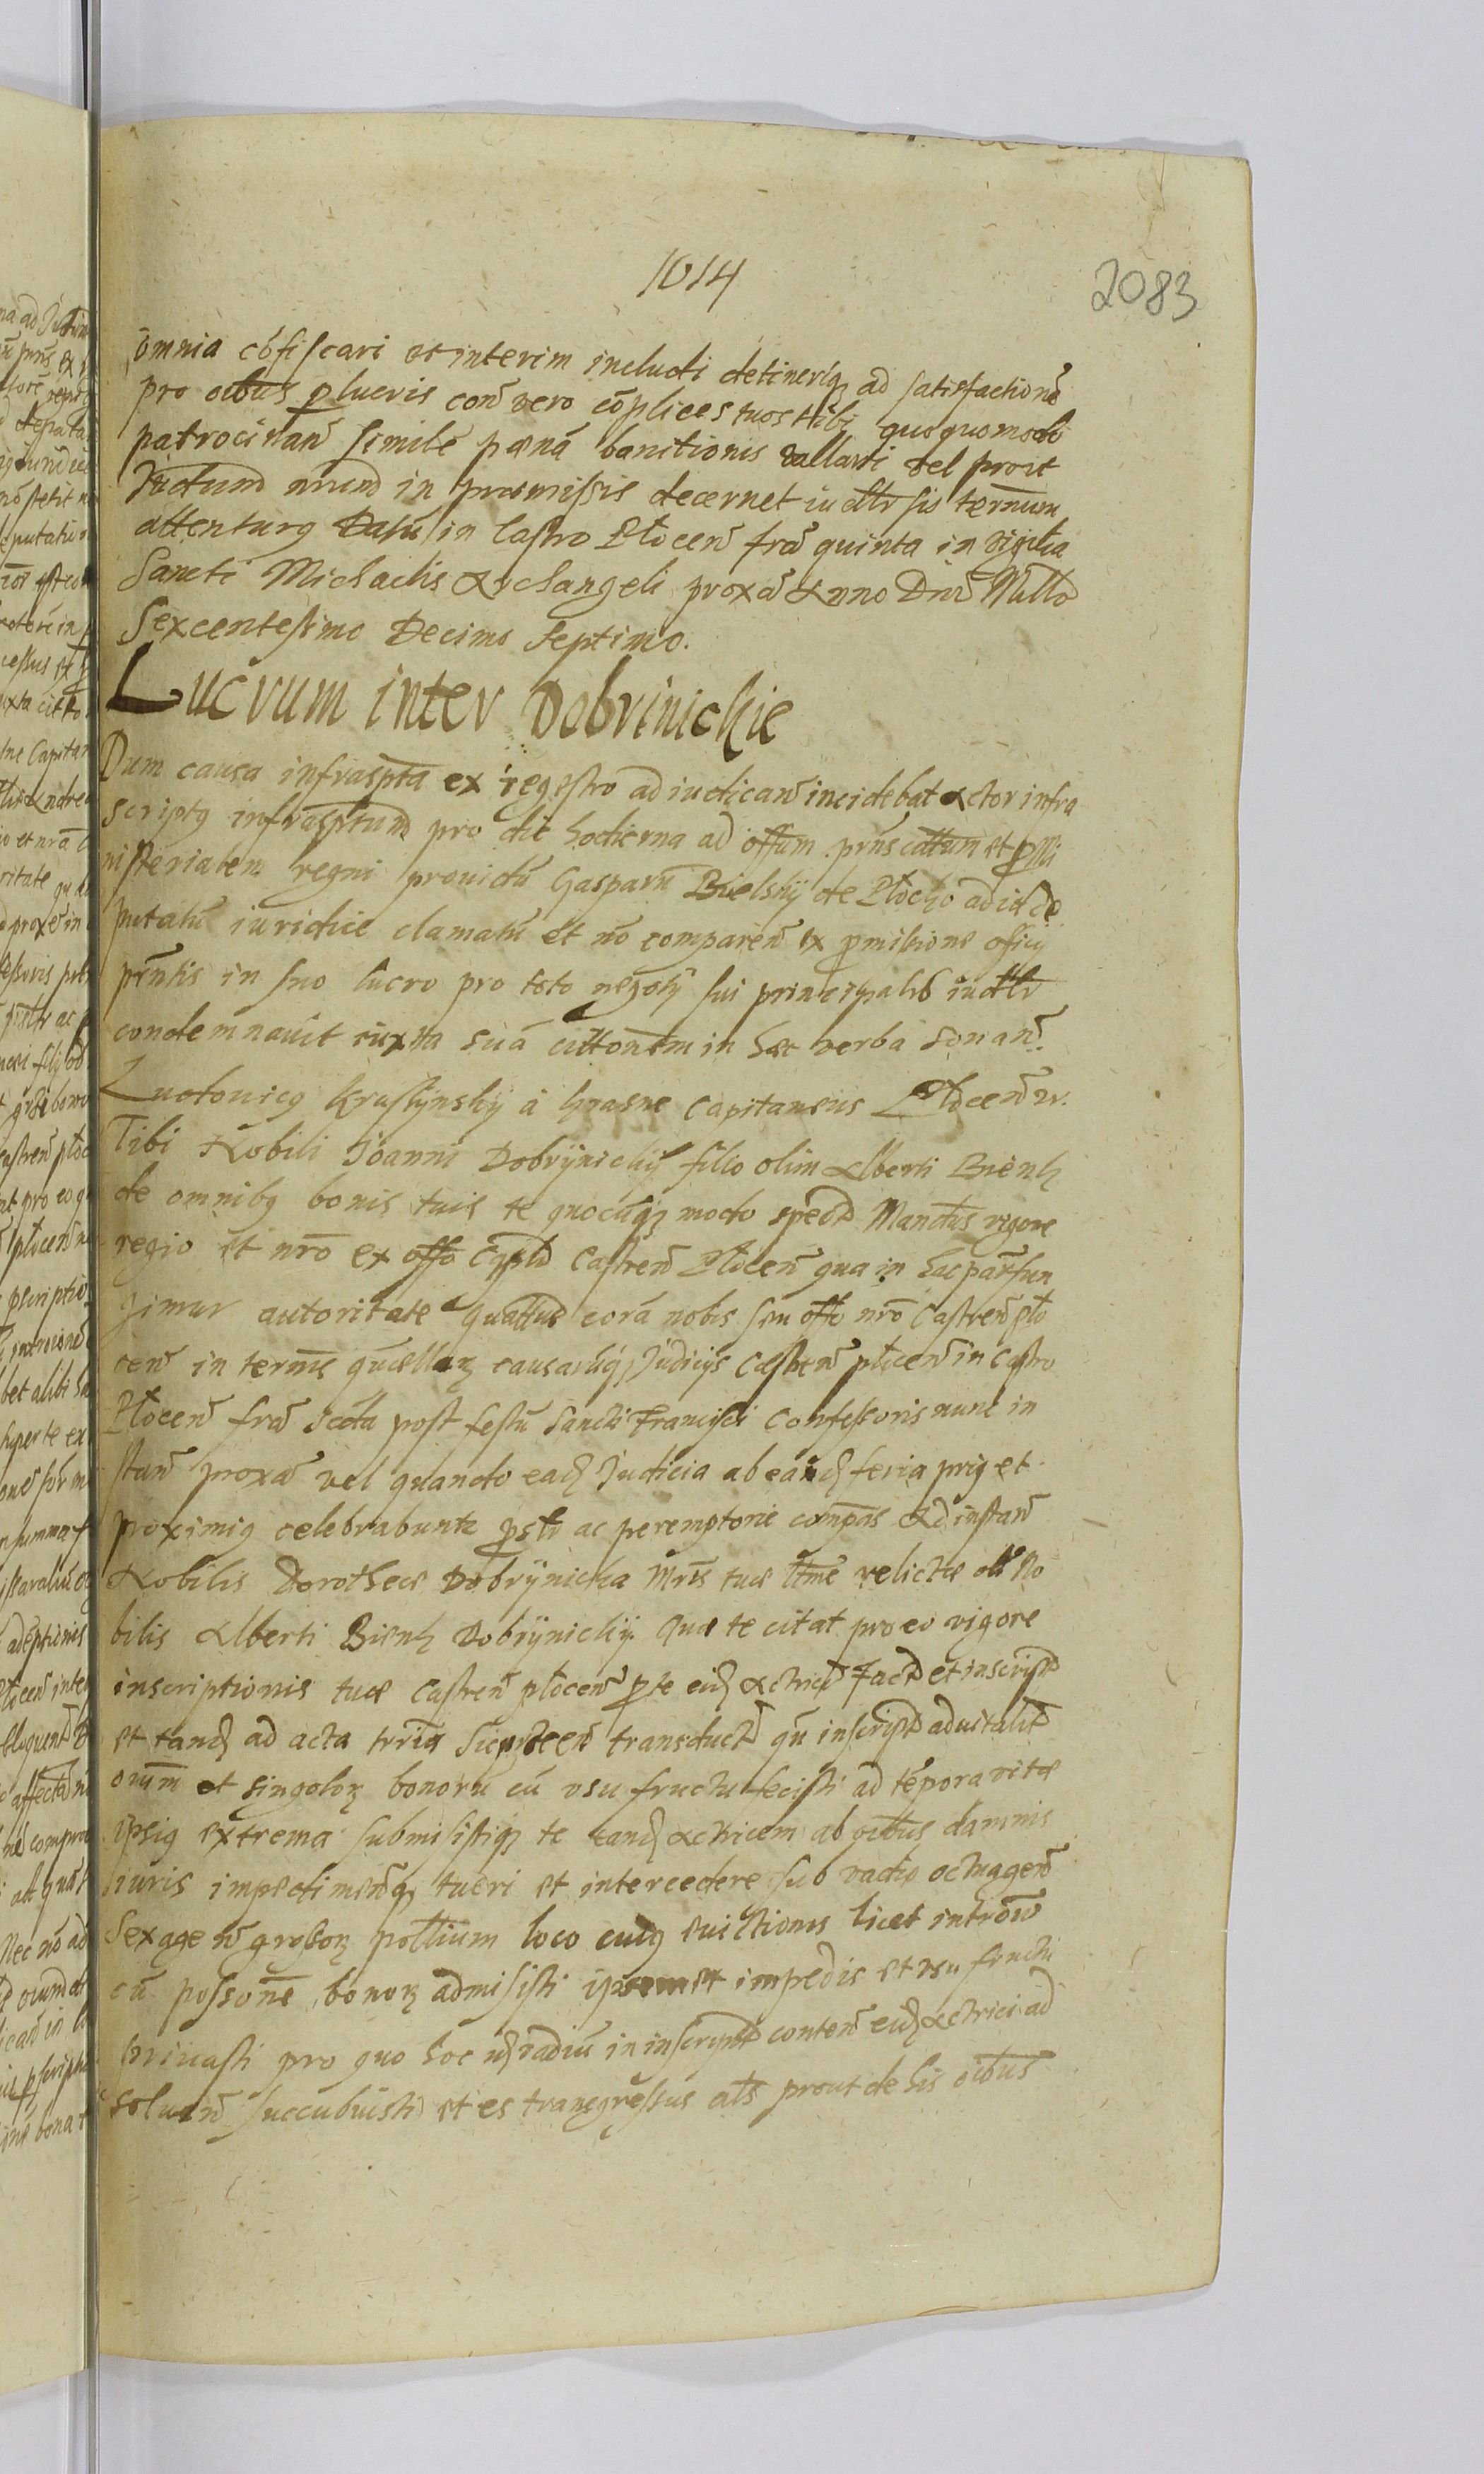 1014
2083
omnia cōfiscari et interim includi detineriq ad satisfactionē
pro oibus p lucris con vero cōplices tuos tibi quoquomodo
patrocinan simile pœnā banitionis vallari vel prout
Judium nrum in præmissis decernet iudltr sis ternum
attenturq Datū in Castro Plocen fra quinta in vigilia
Sancti Michaelis Archangeli proxa Anno Dni Millo
Sexcentesimo Decimo Septimo.
Lucrum inter Dobrinickie
Dum causa infraspta ex regestro ad iudican incidebat Actor infra
scriptq infrasptum pro die hodierna ad offum prñs cittum et p Mi
nisterialem regni prouidū Gasparū Bielskÿ de Plocko ad id de
putatū iuridice clamatū et nō comparen ex pmissione officÿ
prntis in suo lucro pro toto negotÿ sui principalis iudltr
condemnauit iuxta suā cittonem in hæc verba sonan.
Ludouicq Krasÿnskÿ á Krasne Capitaneus Plocen
Tibi Nobili Joanni Dobrÿnickÿ filio olim Alberti Bienk
de omnibq bonis tuis te quocūq modo spect Mandts vigore
regio et nrō ex offo Castren Plocen qua in hac par fun
gimur autoritate quattus corā nobis seu offo nrō Castren plo
cen in termis quællar causarūq Judicÿs Castren plocen in Castro
Plocen fra scda post festū Sancti Francisci Confessoris nunc in
stan proxa vel quando ead Judicia ab eand feria priq et
proximiq celebrabuntr pstr ac peremptorie compas Ad instan
Nobilis Dorotheæ Dobrÿnicka Mris tuæ ltme relictæ olī No
bilis Alberti Bienk Dobrÿnickÿ. Quæ te citat pro eo vigore
inscriptionis tuæ Castren plocen p te eid Actrici Fact et inscript
et tand ad acta trria transduct qū inscript aduitalit
oium et singolor bonorū cū usu fructu fecisti ad tēpora vitæ
ipsiq extrema submisistiq te eand Actricem ab oibus damnis
iuris impedimenq tueri et intercedere sub vadio octuagen
Sexagen grossor pollium loco cuiq euictionis licet intrōiō
cū possone bonor admisisti impedis et usu fructu
priuasti pro quo hoc vadiū in inscript conten eid Actrici ad
soluen succubuisti et es transgressus als prout de his oibus